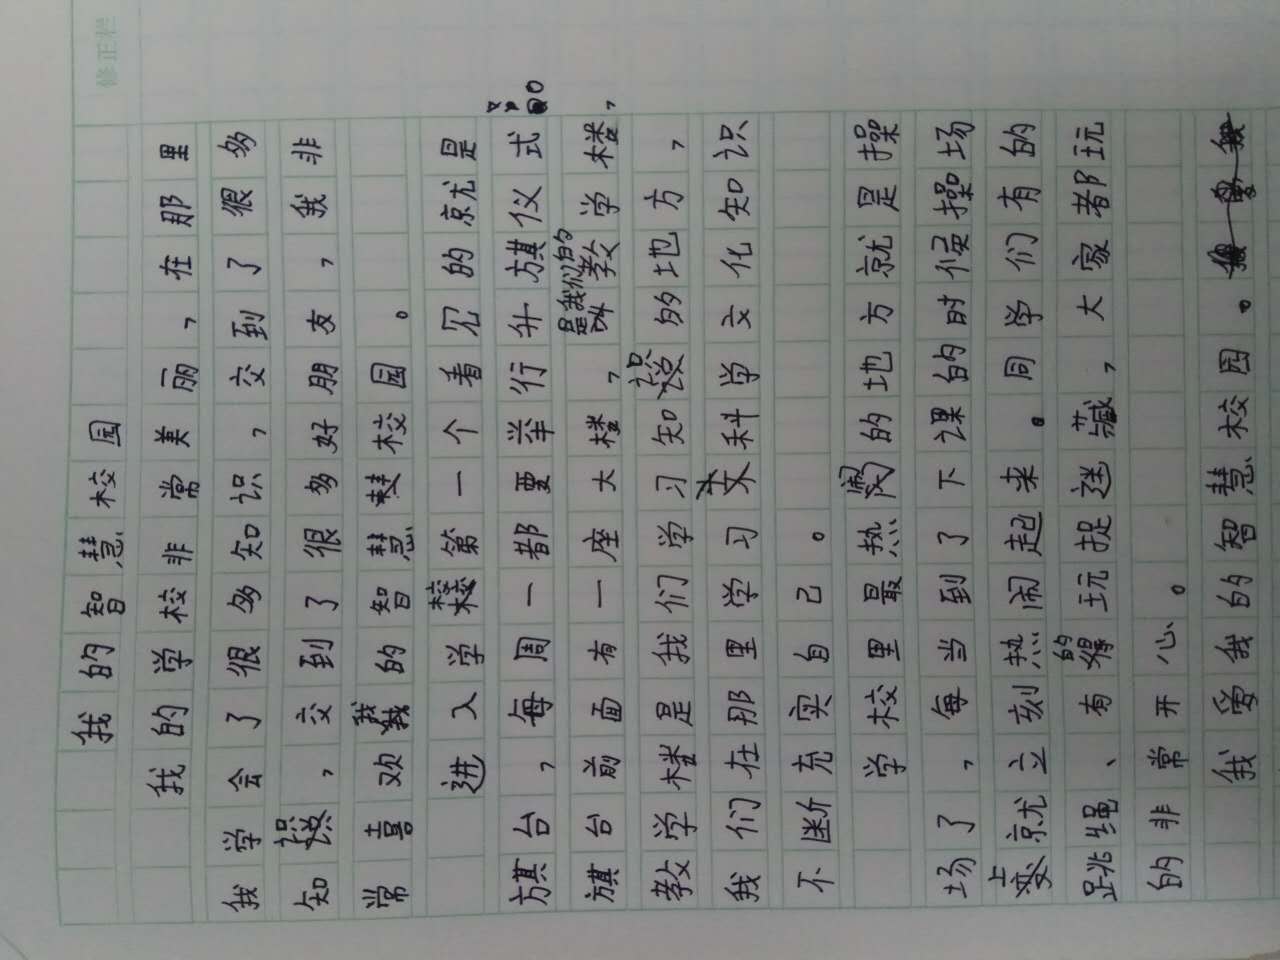 修正栏
我的智慧校园
我的学校非常美丽，在那里
我学会了很多知识，交到了很多
知识，交到了很多好朋友，我非
常喜欢我的智慧校园。
进入学校第一个看见的就是
旗台，每周一都要举行升旗仪式。
旗台前面有一座大楼，是我们的教学楼，
教学楼是我们学习知识的地方，
我们在那里学习科学文化知识
不断充实自己。
学校里最热闹的地方就是操
场了，每当到了下课的时候操场
上就立刻热闹起来。同学们有的
跳绳、有的玩捉迷藏，大家都玩
的非常开心。
我爱我的智慧校园。